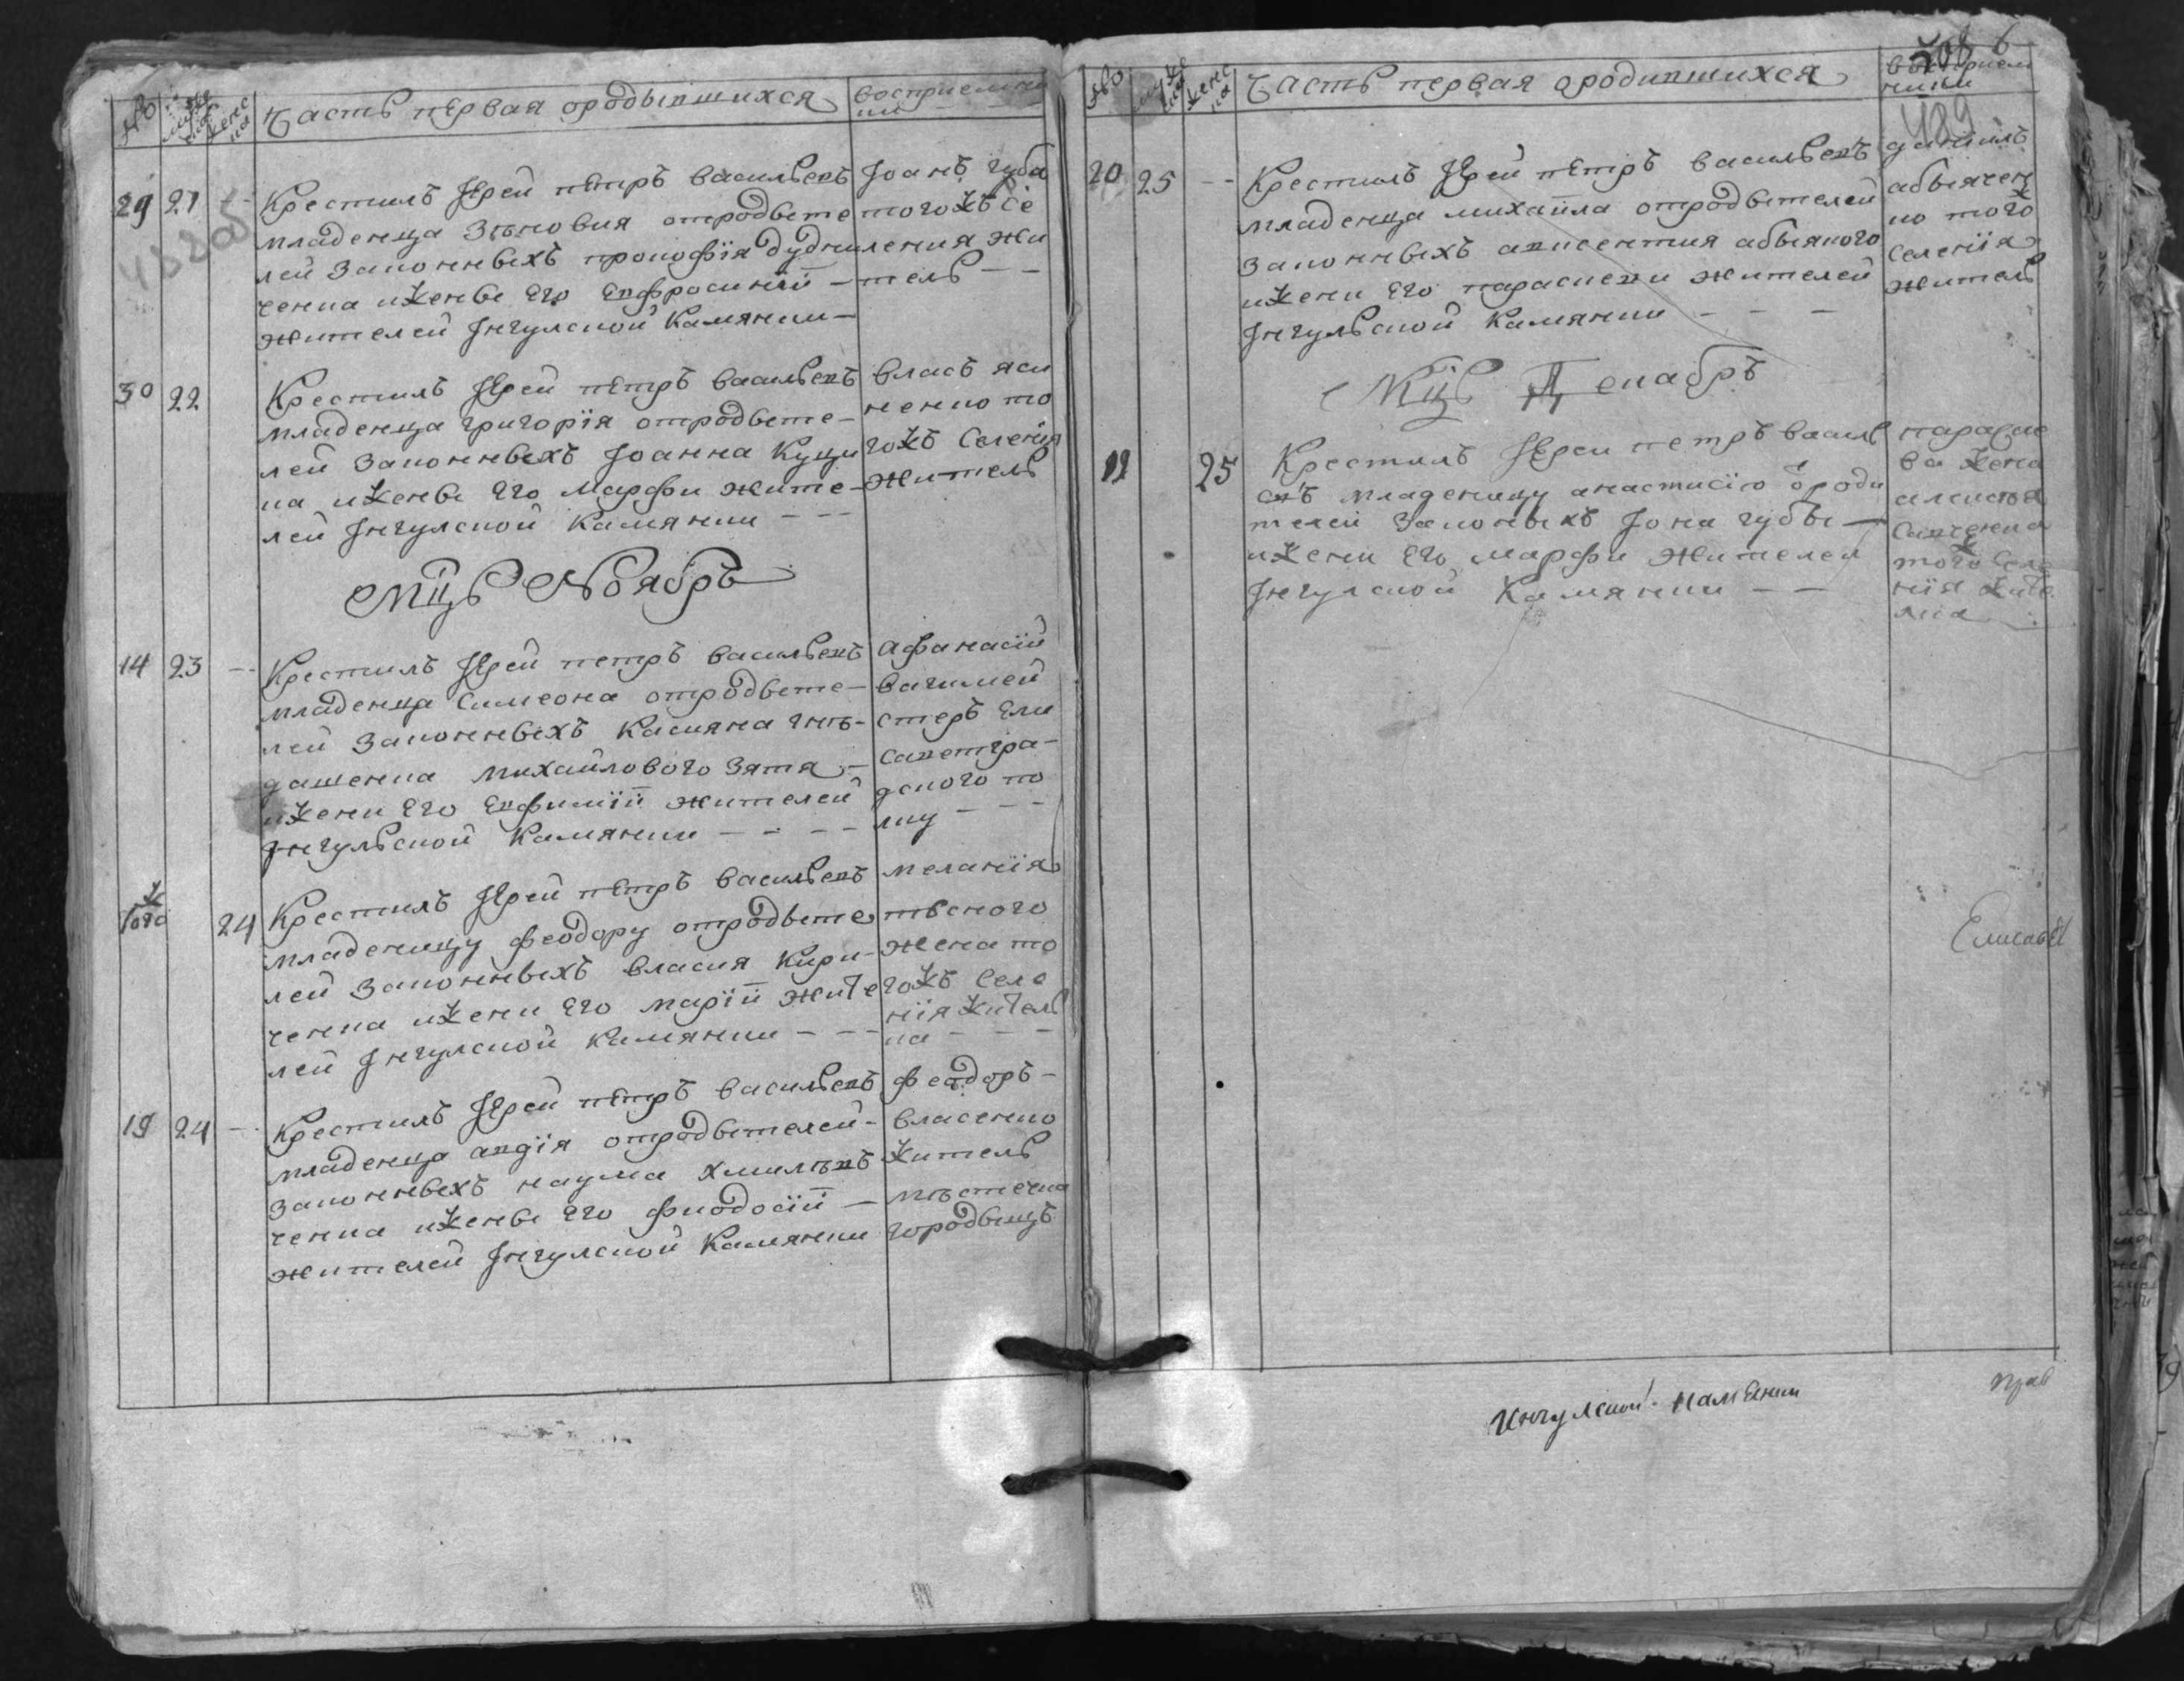 Часть первая ородывшихся
восприемни
ки
29 21 -- Крестилъ Іерей петръ васильевъ
младенца Зѣновия отродвете
лей законнвехъ прокофія дудни
ченка иженве Его Евфросинїй –
жителей Їнгулской Камянки –
Іоанъ губа
тогожъ Се
ления жи
тель – –
482об
30 22 Крестилъ Іерей петръ васильевъ
младенца григорїя отродвете –
лей законнвехъ Іоанна Куци
на иженве Его Марфи жите –
лей Їнгулской Камянки – – –
власъ яси
ненко то
гожъ Селенія
житель
Мцъ Ноябръ
14 23 -- Крестилъ Іерей петръ васильевъ
младенца Симеона отродвете –
лей законнвехъ Касияна гнѣ –
дашенка михайлового Зятя –
ижени Его Евфимїй жителей
Їнгульской Камянки – – – –
Афанасїй
вагимей
стеръ Ели
саветгра –
дского по
лку – – –
Тогож 24 Крестилъ Іерей петръ васильевъ
младеницу феодору отродвете
лей законнвехъ власия Кири –
ченка ижени Его марїй жите
лей Їнгулской Камянки – – –
меланїя
жена то
гожъ Селе
нїя жител
ка – – –
19 24 -- Крестилъ Іерей петръ васильевъ
младенца авдїя отродветелей –
законнвехъ наума хмилѣвъ
ченка иженве Его фиодосїй –
жителей Їнгулской Камянки
феодоръ –
власенко
житель
мѣстечка
городвищъ
Часть первая ородившихся
восприем
ники
489
20 25 -- Крестилъ Іерей петръ васильевъ
младенца михаила отродветелей
законнвехъ авксентия абвякого
ижени Его параскеви жителей
Їнгульской Камянки – – –
данилъ
абвячен
ко того
Селенїя
житель
Мцъ Декабръ
25 Крестилъ Іереи петръ василь
евъ младеницу анастисію ѿ роди
телей Законвехъ Іона губве –
ижени Его марфи жителей
Їнгулской Камянки – –
параске
ва жена
алексея
Савченка
того Селе
нїя жите
лка
Елисавет
Ингулской Камѣнки
прав